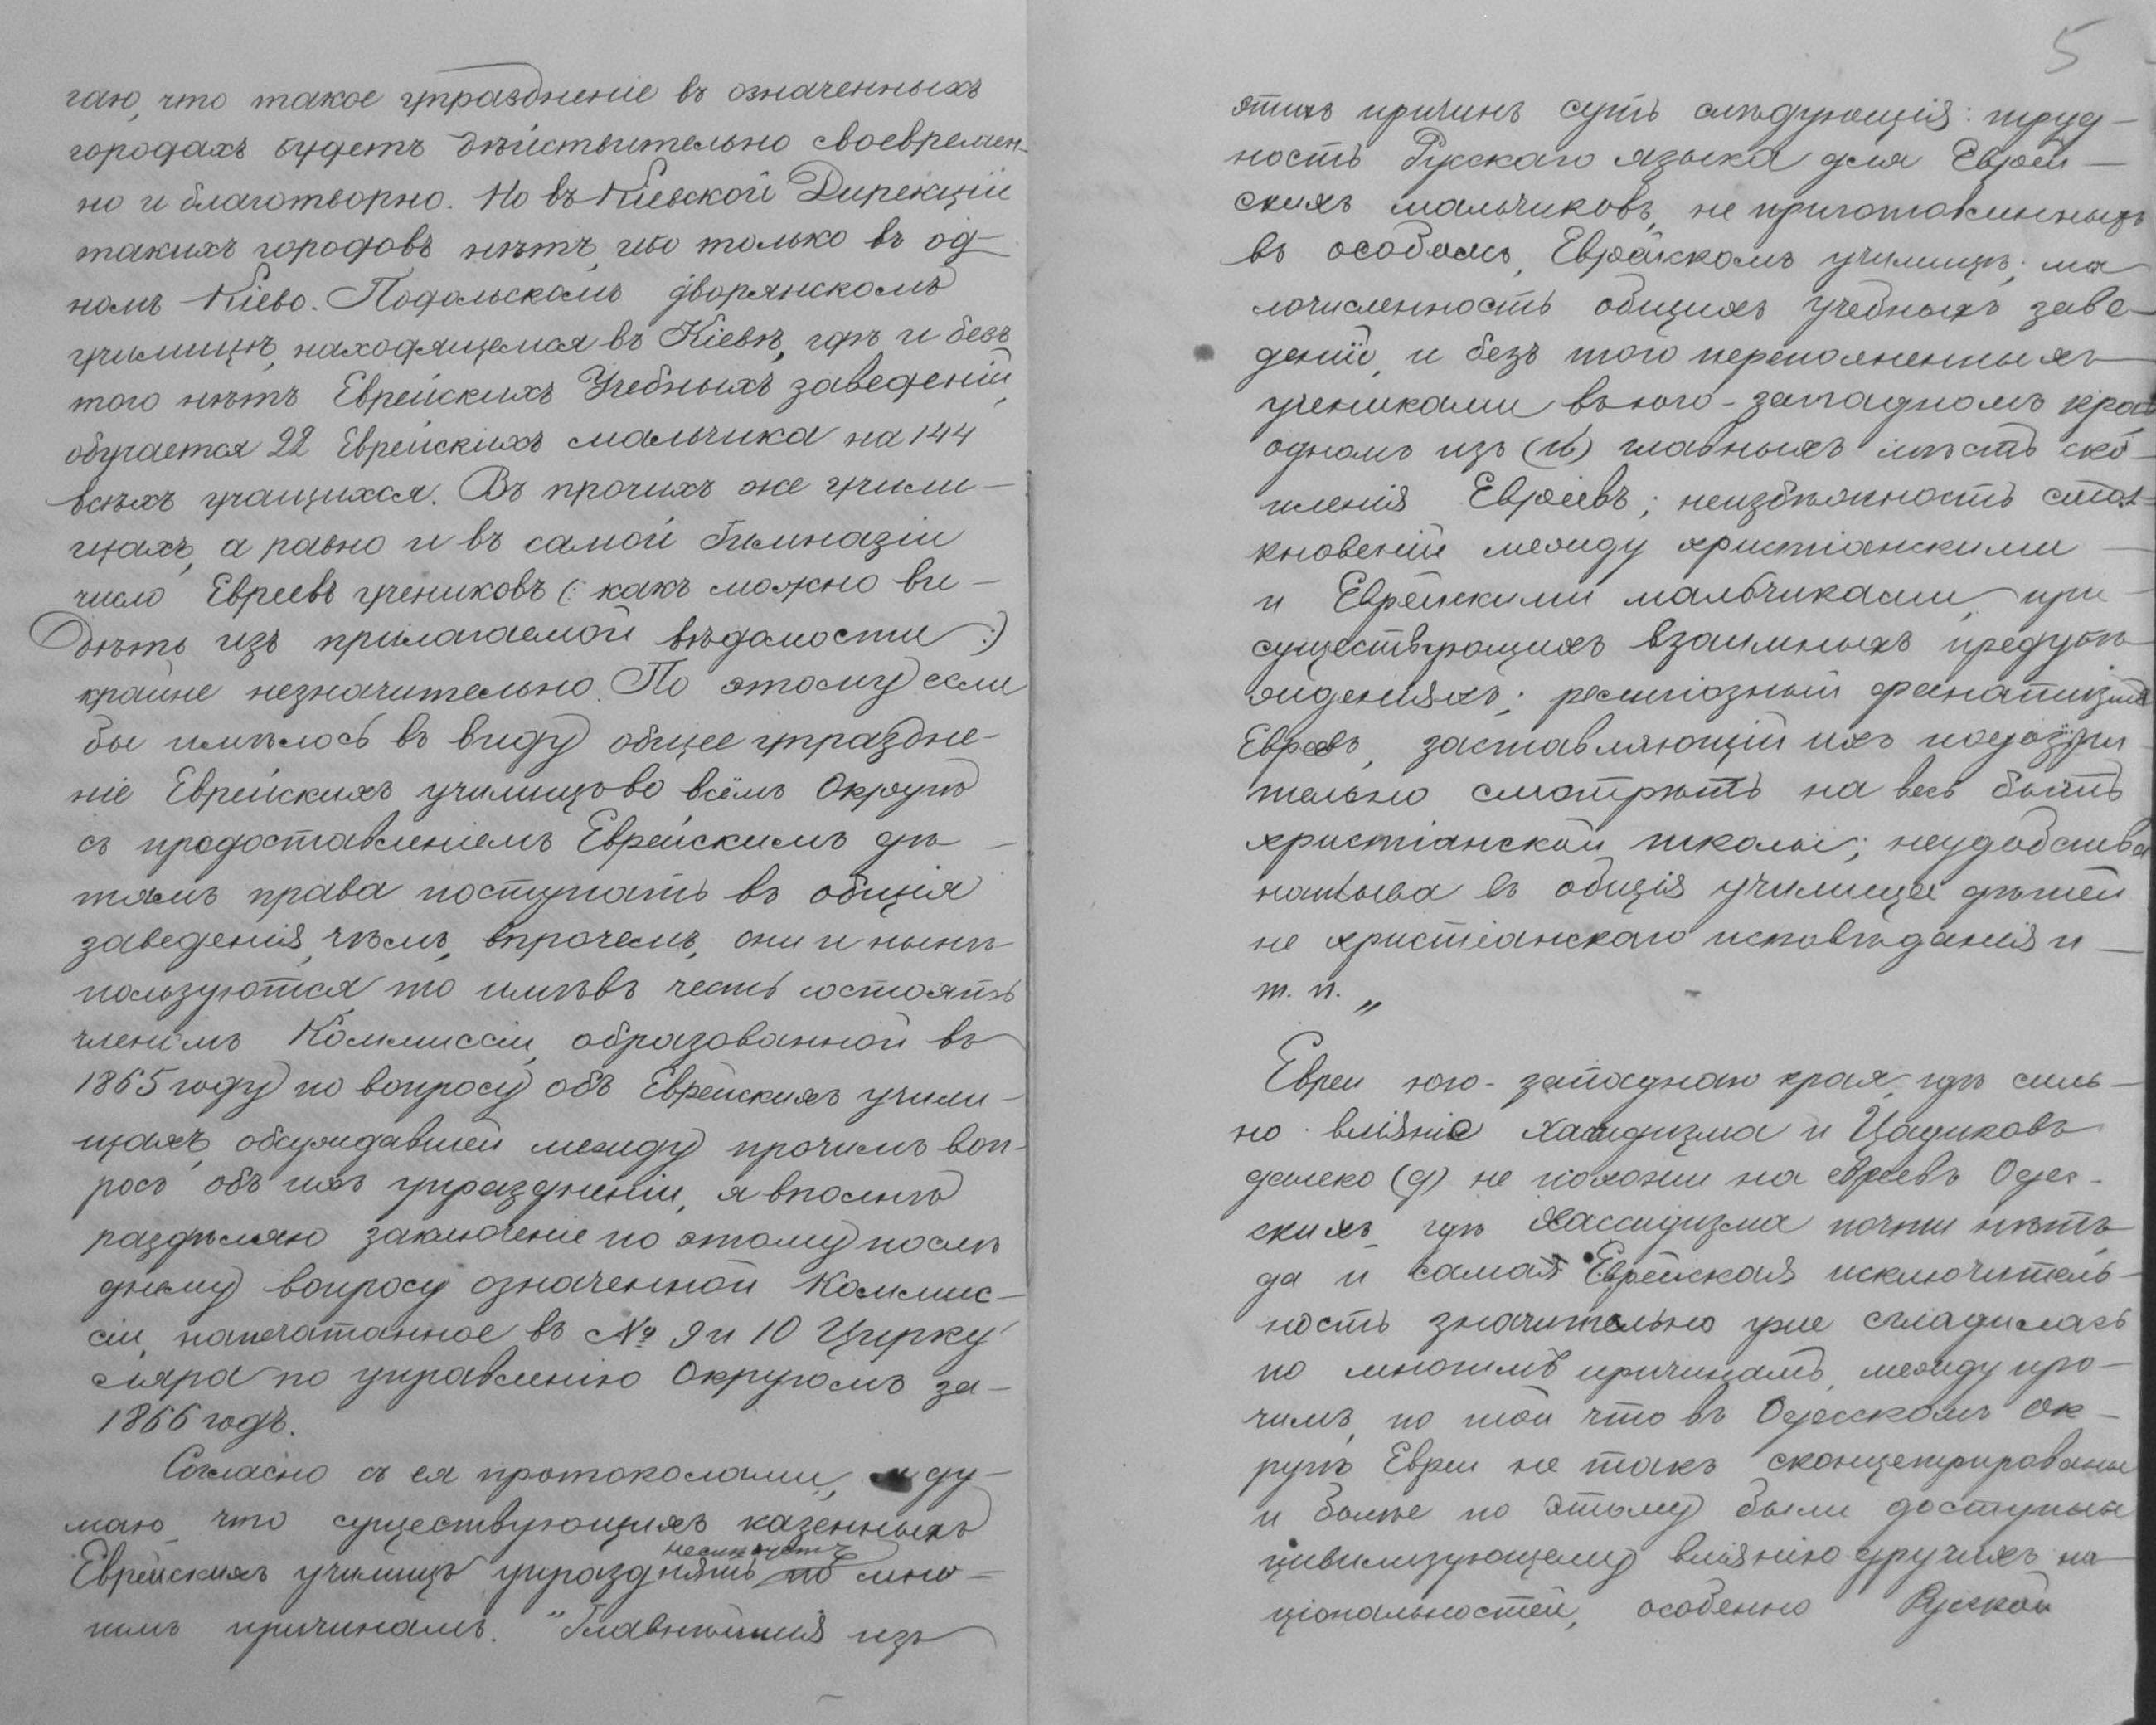 гаю, что такое упраздненіе въ означенныхъ
городахъ будетъ дѣйствительно своевремен-
но и благотворно. Но въ Кіевской Дирекціи
такихъ городовъ нѣтъ, ибо только въ од-
номъ Кіево-Подольскомъ дворянскомъ
училищѣ, находящемся въ Кіевѣ, гдѣ и безъ
того нѣтъ Еврейскихъ Учебныхъ заведеній,
обучается 22 Еврейскихъ мальчика на 144
всѣхъ учащихся. Въ прочихъ же учили-
щахъ, а равно и въ самой Гимназіи
число Евреевъ учениковъ (: какъ можно ви-
дѣть изъ прилагаемой вѣдомости :)
крайне незначительно. По этому если
бы имѣлось въ виду общее упраздне-
ніе Еврейскихъ училищъ во всёмъ Округѣ
съ предоставленіемъ Еврейскимъ дѣ-
тямъ права поступать въ общія
заведенія, чѣмъ, впрочемъ, они и нынѣ
пользуются, то имѣвъ честь состоять
членомъ Коммиссіи, образованной въ
1865 году по вопросу объ Еврейскихъ учили-
щахъ, обсуждавшей между прочимъ воп-
росъ объ ихъ упраздненіи, я вполнѣ
раздѣляю заключеніе по этому послѣ
днему вопросу означенной Коммис-
сіи, напечатанное въ № 9 и 10 Цирку
ляра по управленію Округомъ за-
1866 годъ.
Согласно съ ея протоколами, я ду-
маю, что существующихъ казенныхъ
не слѣдуетъ
Еврейскихъ училищъ упразднять по мно-
гимъ причинамъ. "Главнѣйшія изъ
5
этихъ причинъ суть слѣдующія: труд-
ность Русскаго языка для Еврей-
скихъ мальчиковъ, не приготовленныхъ
въ особомъ, Еврейскомъ училищѣ; ма
лочисленность общихъ учебныхъ заве-
деній, и безъ того переполненныхъ
учениками въ юго-западномъ краѣ
одномъ изъ (гл) главныхъ мѣстъ ско-
пленія Евреевъ; неизбѣжность стол-
кновеній между христіанскими
и Еврейскими мальчиками, при
существующихъ взаимныхъ предубѣ
жденіяхъ; религіозный фанатизмъ
Евреевъ, заставляющій ихъ подозри
тельно смотрѣть на весь бытъ
христіанской школы; неудобства
наплыва въ общія училища дѣтей
не христіанскаго исповѣданія и
т. п. „
Евреи юго-западнаго края, гдѣ силь-
но вліяніе хасидизма и Цадиковъ
далеко (д) не похожи на евреевъ Одес-
скихъ, гдѣ Хассидизма почти нѣтъ,
да и самая Еврейская исключитель-
ность значительно уже сгладилась
по многимъ причинамъ, между про-
чимъ, по той что въ Одесскомъ Ок-
ругѣ Евреи не такъ сконцетрированы
и болѣе по этому были доступны
цивилизующему вліянію другихъ на
ціональностей, особенно Русской